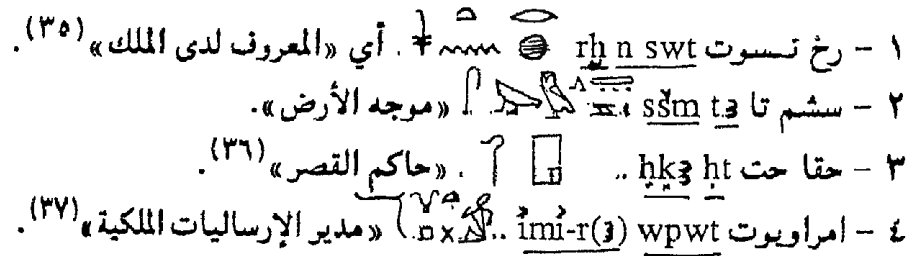 ١ - رخ تسوت rḫ n swt . أي «المعروف لدى الملك»(٣٥).
٢ - سشم تا sšm tꜣ «موجه الأرض».
٣ - حقا حت ḥḳꜣ ḥt .. . «حاكم القصر»(٣٦).
٤ - امراوبوت imi-r(ꜣ) wpwt .. «مدير الإرساليات الملكية»(٣٧).